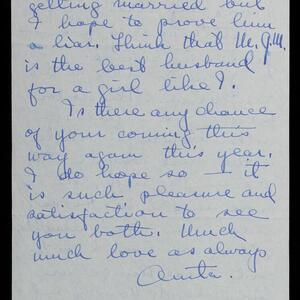 getting married but
I hope to prove him
a liar. Think that M.G.M.
is the best husband
for a girl like I.
Is there any chance
of your coming this
way again this year.
I do hope so — it
is such pleasure and
satisfaction to see
you both. Much
much love as always
Anita.